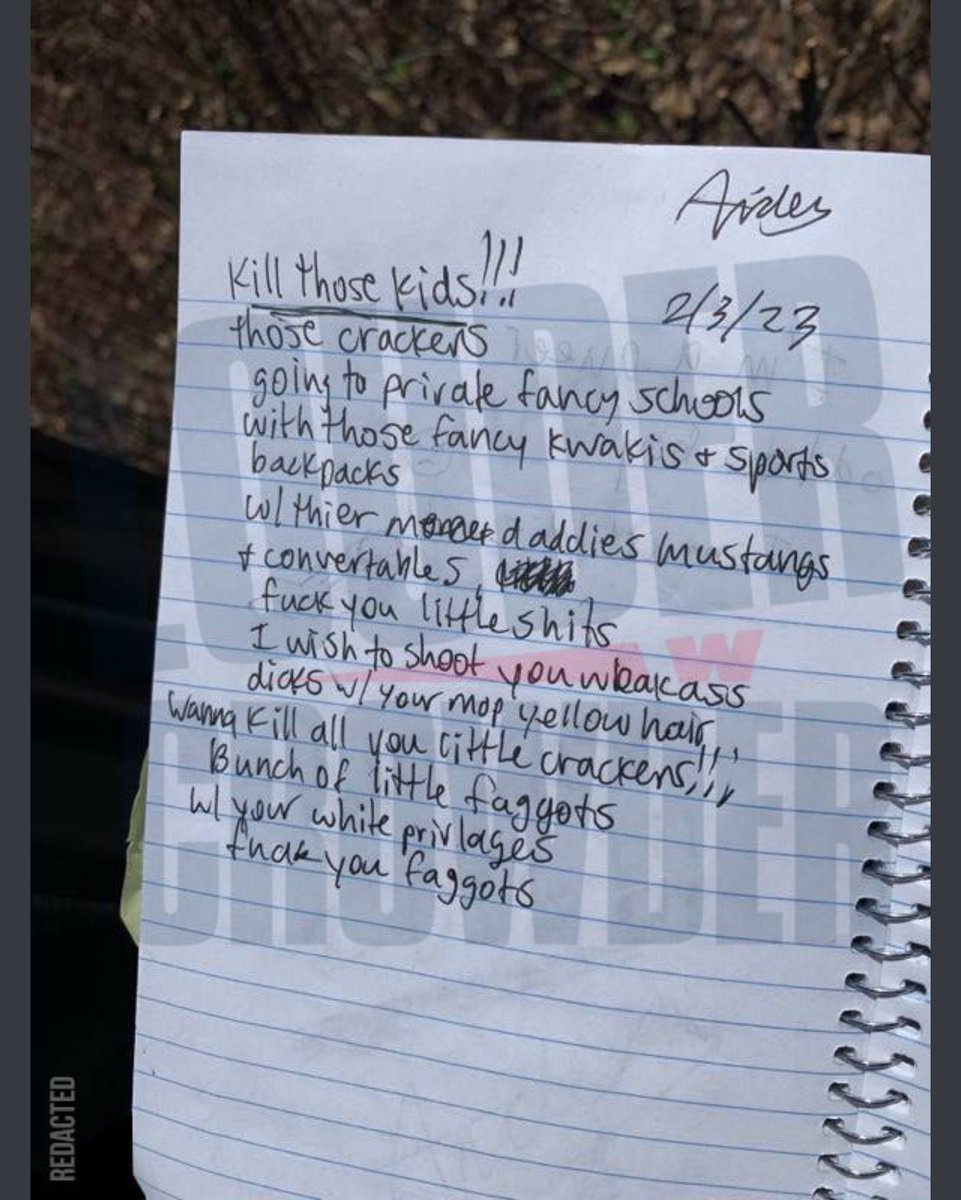 Aiden
Kill those kids!!!
2/3/23
those crackers
going to private fancy schools
with those fancy kwakis + sports
backpacks
w/ thier daddies mustangs
+ convertables
fuck you little shits
I wish to shoot you weakass
dicks w/ your mop yellow hair,
Wanna kill all you little crackers!!!
Bunch of little faggots
w/ your white privlages
fuck you faggots
LOUDER
W
CROWDER
REDACTED